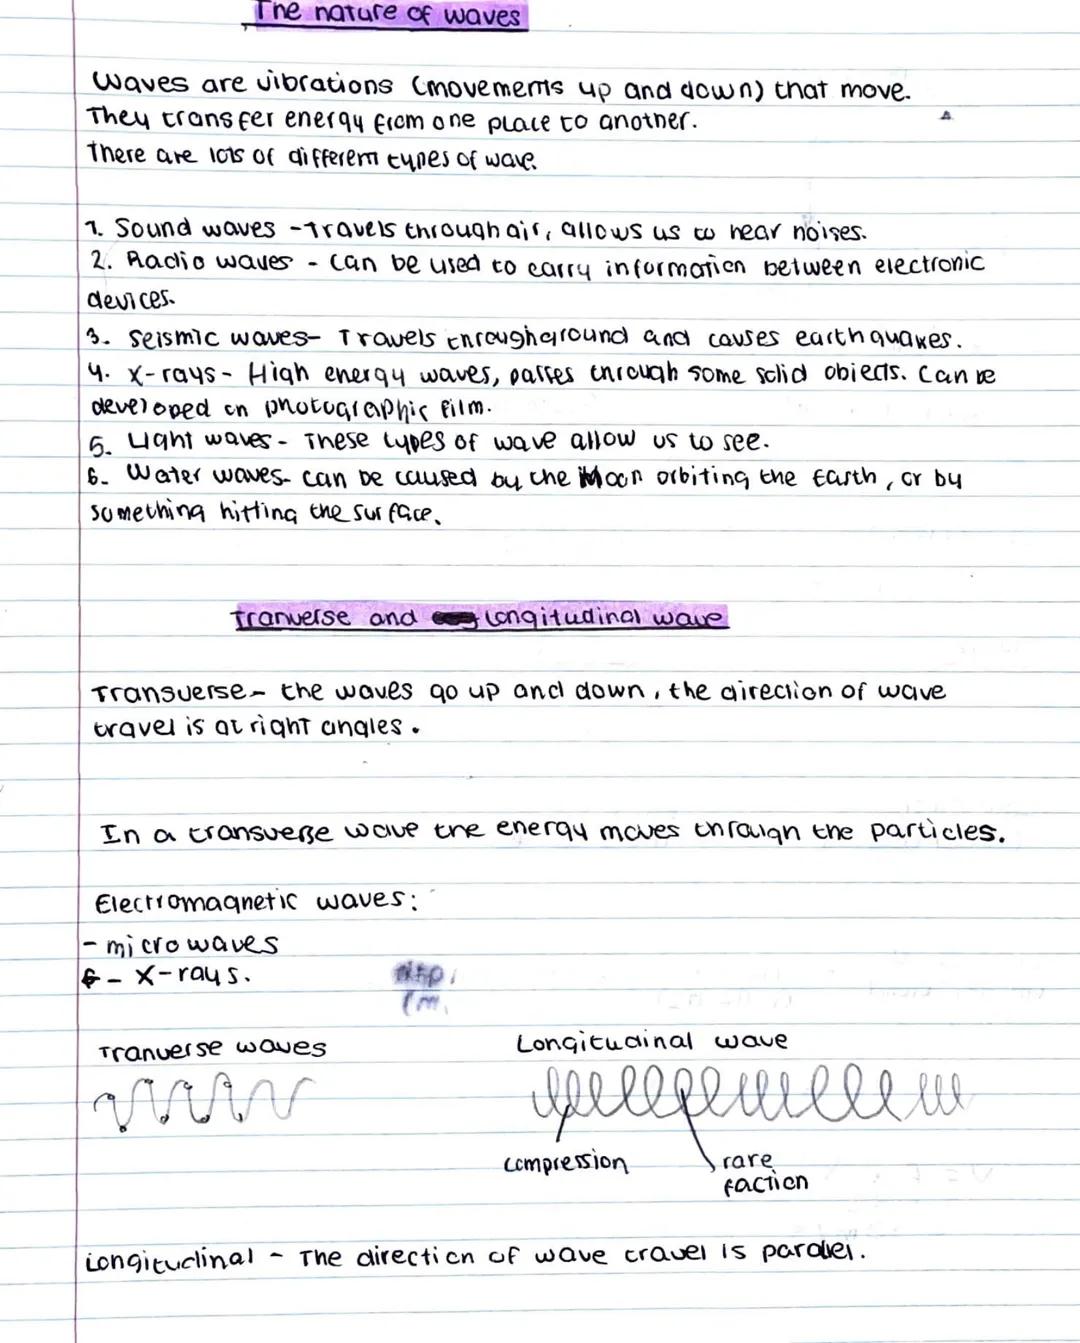 The nature of waves
Waves are vibrations (movements up and down) that move.
They transfer energy from one place to another.
There are lots of different types of wave.
1. Sound waves - Travels through air, allows us to hear noises.
2. Radio waves - Can be used to carry information between electronic
devices.
3. Seismic waves- Travels throughground and causes earthquakes.
4. X-rays- High energy waves, passes through some solid objects. Can be
developed on photographic film.
5. Light waves- These types of wave allow us to see.
6. Water waves- can be caused by the Moon orbiting the Earth, or by
something hitting the surface.
Tranverse and longitudinal wave
Transverse- the waves go up and down, the direction of wave
travel is at right angles.
In a transverse wave the energy moves through the particles.
Electromagnetic waves:
- microwaves
- X-rays.
Tranverse waves
Longitudinal wave
compression
rare
faction
Longitudinal - The direction of wave travel is parallel.